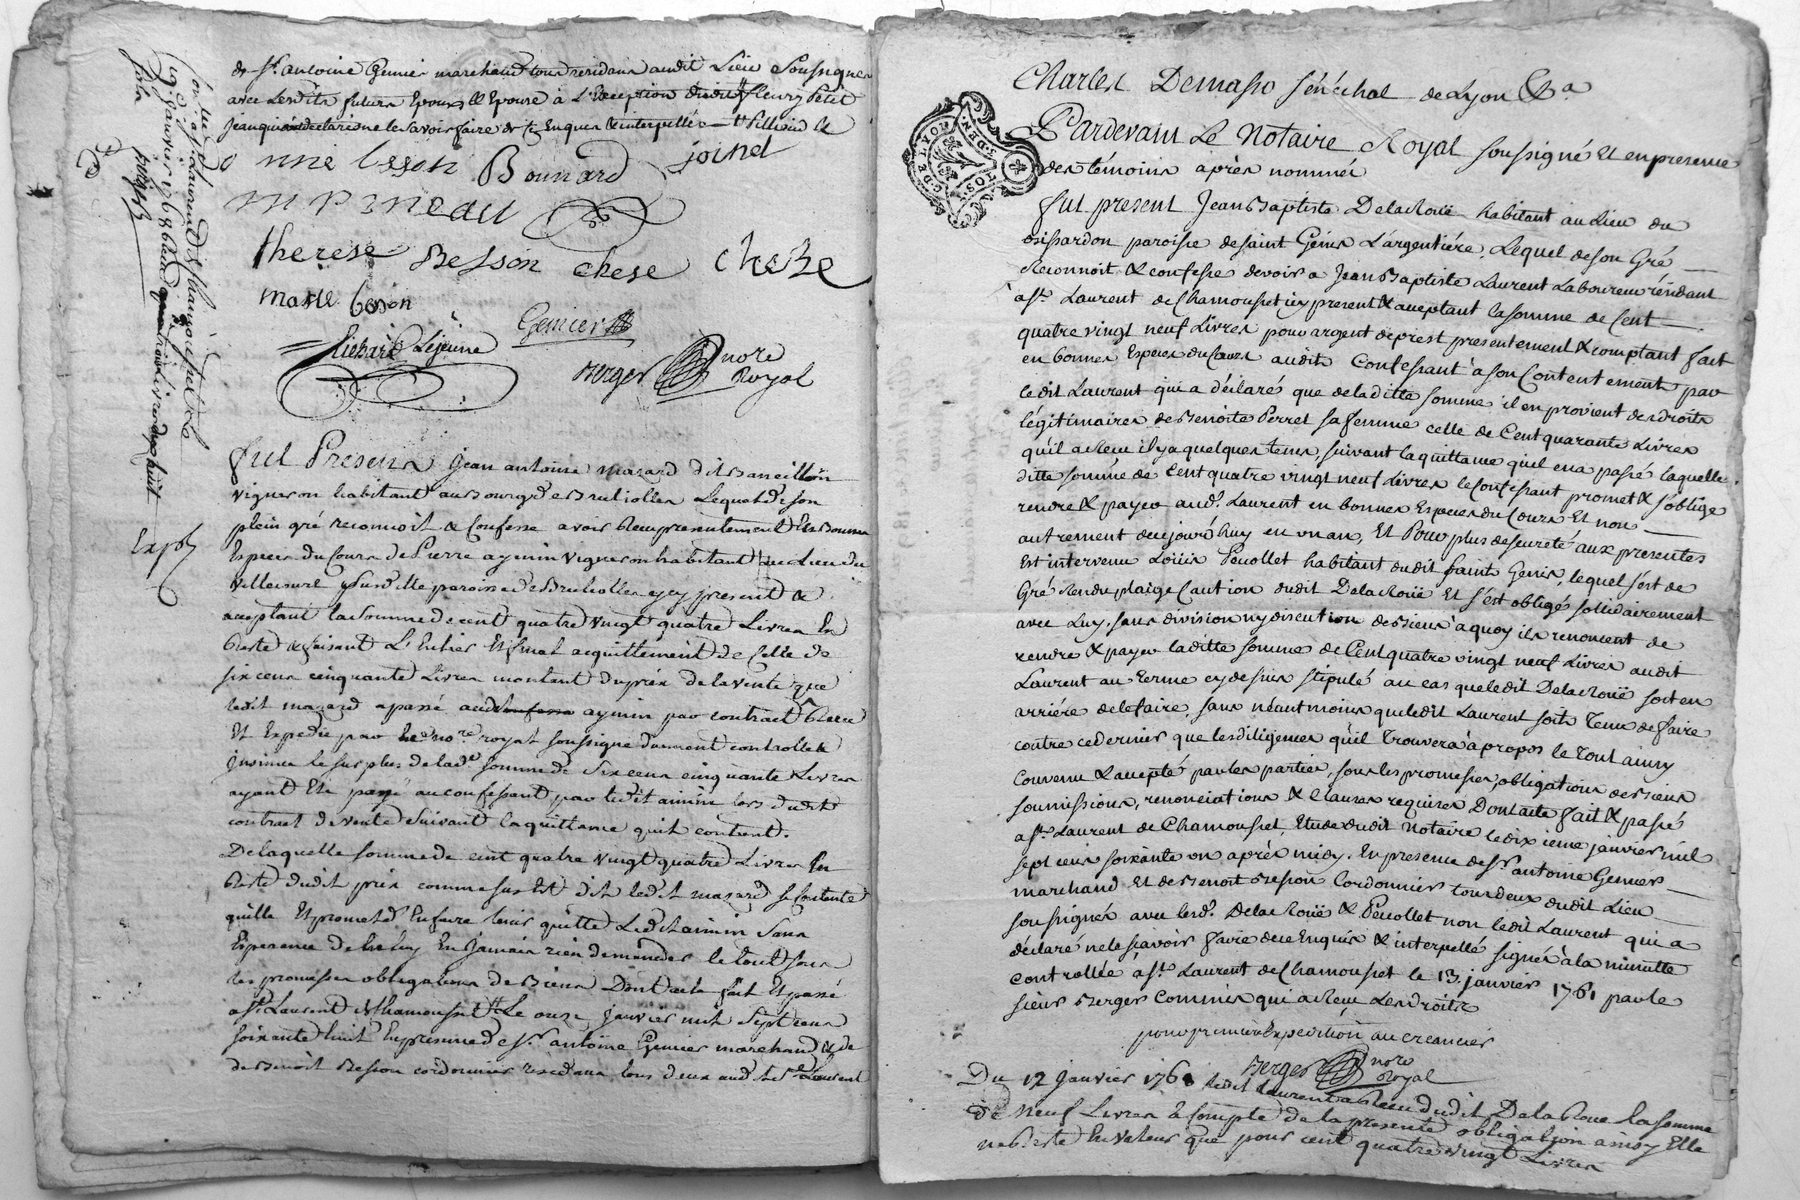 de Sr. antoine Genier marchand tous residans audit Lieu Soussignes
avec Lesdits futurs Epoux & Epouse à L'Exception dudit fleury Petit
Jean qui a declaré ne le Savoir faire de ce Enquis & interpellé
nne besson Bonnard joinel
m pineau
therese Besson chese cheze
marie beson
Genier
Richard Lejeune
Berger nore Royal
Controllé a St Laurent de Chamousset le
19 Janvier 1768
fut Present Jean antoine mazard dit
vigneron habitant au Bourg de Brullioles Lequel de Son
plein gré reconnoit & Confesse avoir Reçu presentement En Bonnes
Especes du Cours de Pierre aymin vigneron habitant au Lieu du
Exp
paroisse de Brullioles icy present &
acceptant la Somme de cent quatre vingt quatre Livres En
Reste & faisant L'Entier Et final acquittement de Celle de
Six cens cinquante Livres montant du prix de la vente que
ledit mazard a passé audit aymin par contract Reçu
Et Expedié par le nore. royal soussigné duement controllé &
insinué le surplus de lade. somme de Six cens cinquante Livres
ayant Eté payé au confessant par ledit aimin lors dudit
contract de vente Suivant la quittance qu'il contient.
De laquelle somme de cent quatre vingt quatre Livres En
Reste dudit prix comme sus Est dit ledit mazard se Contente
quitte Et promet d'En faire tenir quitte Ledit aimin Sans
Esperance de luy En jamais rien demander le tout sous
les promesses obligations de Biens Dont acte fait Et passé
a St. Laurent de Chamousset Le onze janvier mil Sept cens
soixante huit En presence de Sr. antoine Genier marchand & de
de Benoit Besson cordonnier residans tous deux audit St Laurent
Charles Demasso Sénéchal de Lyon &a
Pardevant Le Notaire Royal soussigné Et en presence
des témoins après nommés
fut present Jean Baptiste Delaroüe habitant au Lieu du
Brissardon paroisse de saint Genis L'argentiére, Lequel de son Gré
Reconnoit & confesse devoir a Jean Baptiste Laurent Laboureur résidant
à St. Laurent de Chamousset icy present & acceptant la somme de Cent
quatre vingt neuf Livres pour argent de prest presentement & comptant fait
en bonnes Especes du Cours audit Confessant à son Contentement par
ledit Laurent qui a déclaré que de la ditte somme il en provient des droits
légitimaires de Benoite Perret sa femme celle de Cent quarante Livres
qu'il a Reçu il y a quelques tems, suivant la quittance qu'il en a passé laquelle
ditte somme de Cent quatre vingt neuf Livres le Confessant promet & s'oblige
rendre & payer aud. Laurent en bonnes Especes du Cours Et non
autrement de ce jourd'huy en un an, Et Pour plus de sureté aux presentes
Est intervenu Loüis Peuollet habitant dudit saint Genis, lequel s'est de
Gré Rendu plaige Caution dudit Delaroüe Et s'est obligé sollidairement
avec Luy, sans division ny discution de Biens à quoy ils renoncent de
rendre & payer laditte somme de Cent quatre vingt neuf Livres audit
Laurent au Terme cy dessus stipulé au cas que ledit Delaroüe soit en
arriére de le faire, sans néantmoins que ledit Laurent soit Tenu de faire
contre ce dernier que les diligences qu'il Trouvera à propos le Tout ainsy
Convenu & accepté par les parties, sous les promesses, obligations de Biens
soumissions, renonciations & Clauses requises Dont acte fait & passé
a St. Laurent de Chamousset, Etude dudit Notaire le dix ieme janvier mil
sept cens soixante un après midy. En presence de Sr. antoine Genier
marchand Et de Benoit Besson Cordonnier tous deux dudit Lieu
soussignés avec lesd. Delaroüe & Peuollet non ledit Laurent qui a
déclaré ne le sçavoir faire de ce Enquis & interpellé signés à la minutte
Controllée à St. Laurent de Chamousset le 13. janvier 1761 par le
sieur Berger Commis qui a Reçu Les droits
pour premiere Expedition au creancier
Berger nore Royal
Du 12 janvier 176 ledit Laurent a Reçu dudit Dela Roue la somme
de neuf Livres à Compte de la presente obligation ainsy Elle
ne Reste En valeur que pour cent quatre vingt Livres